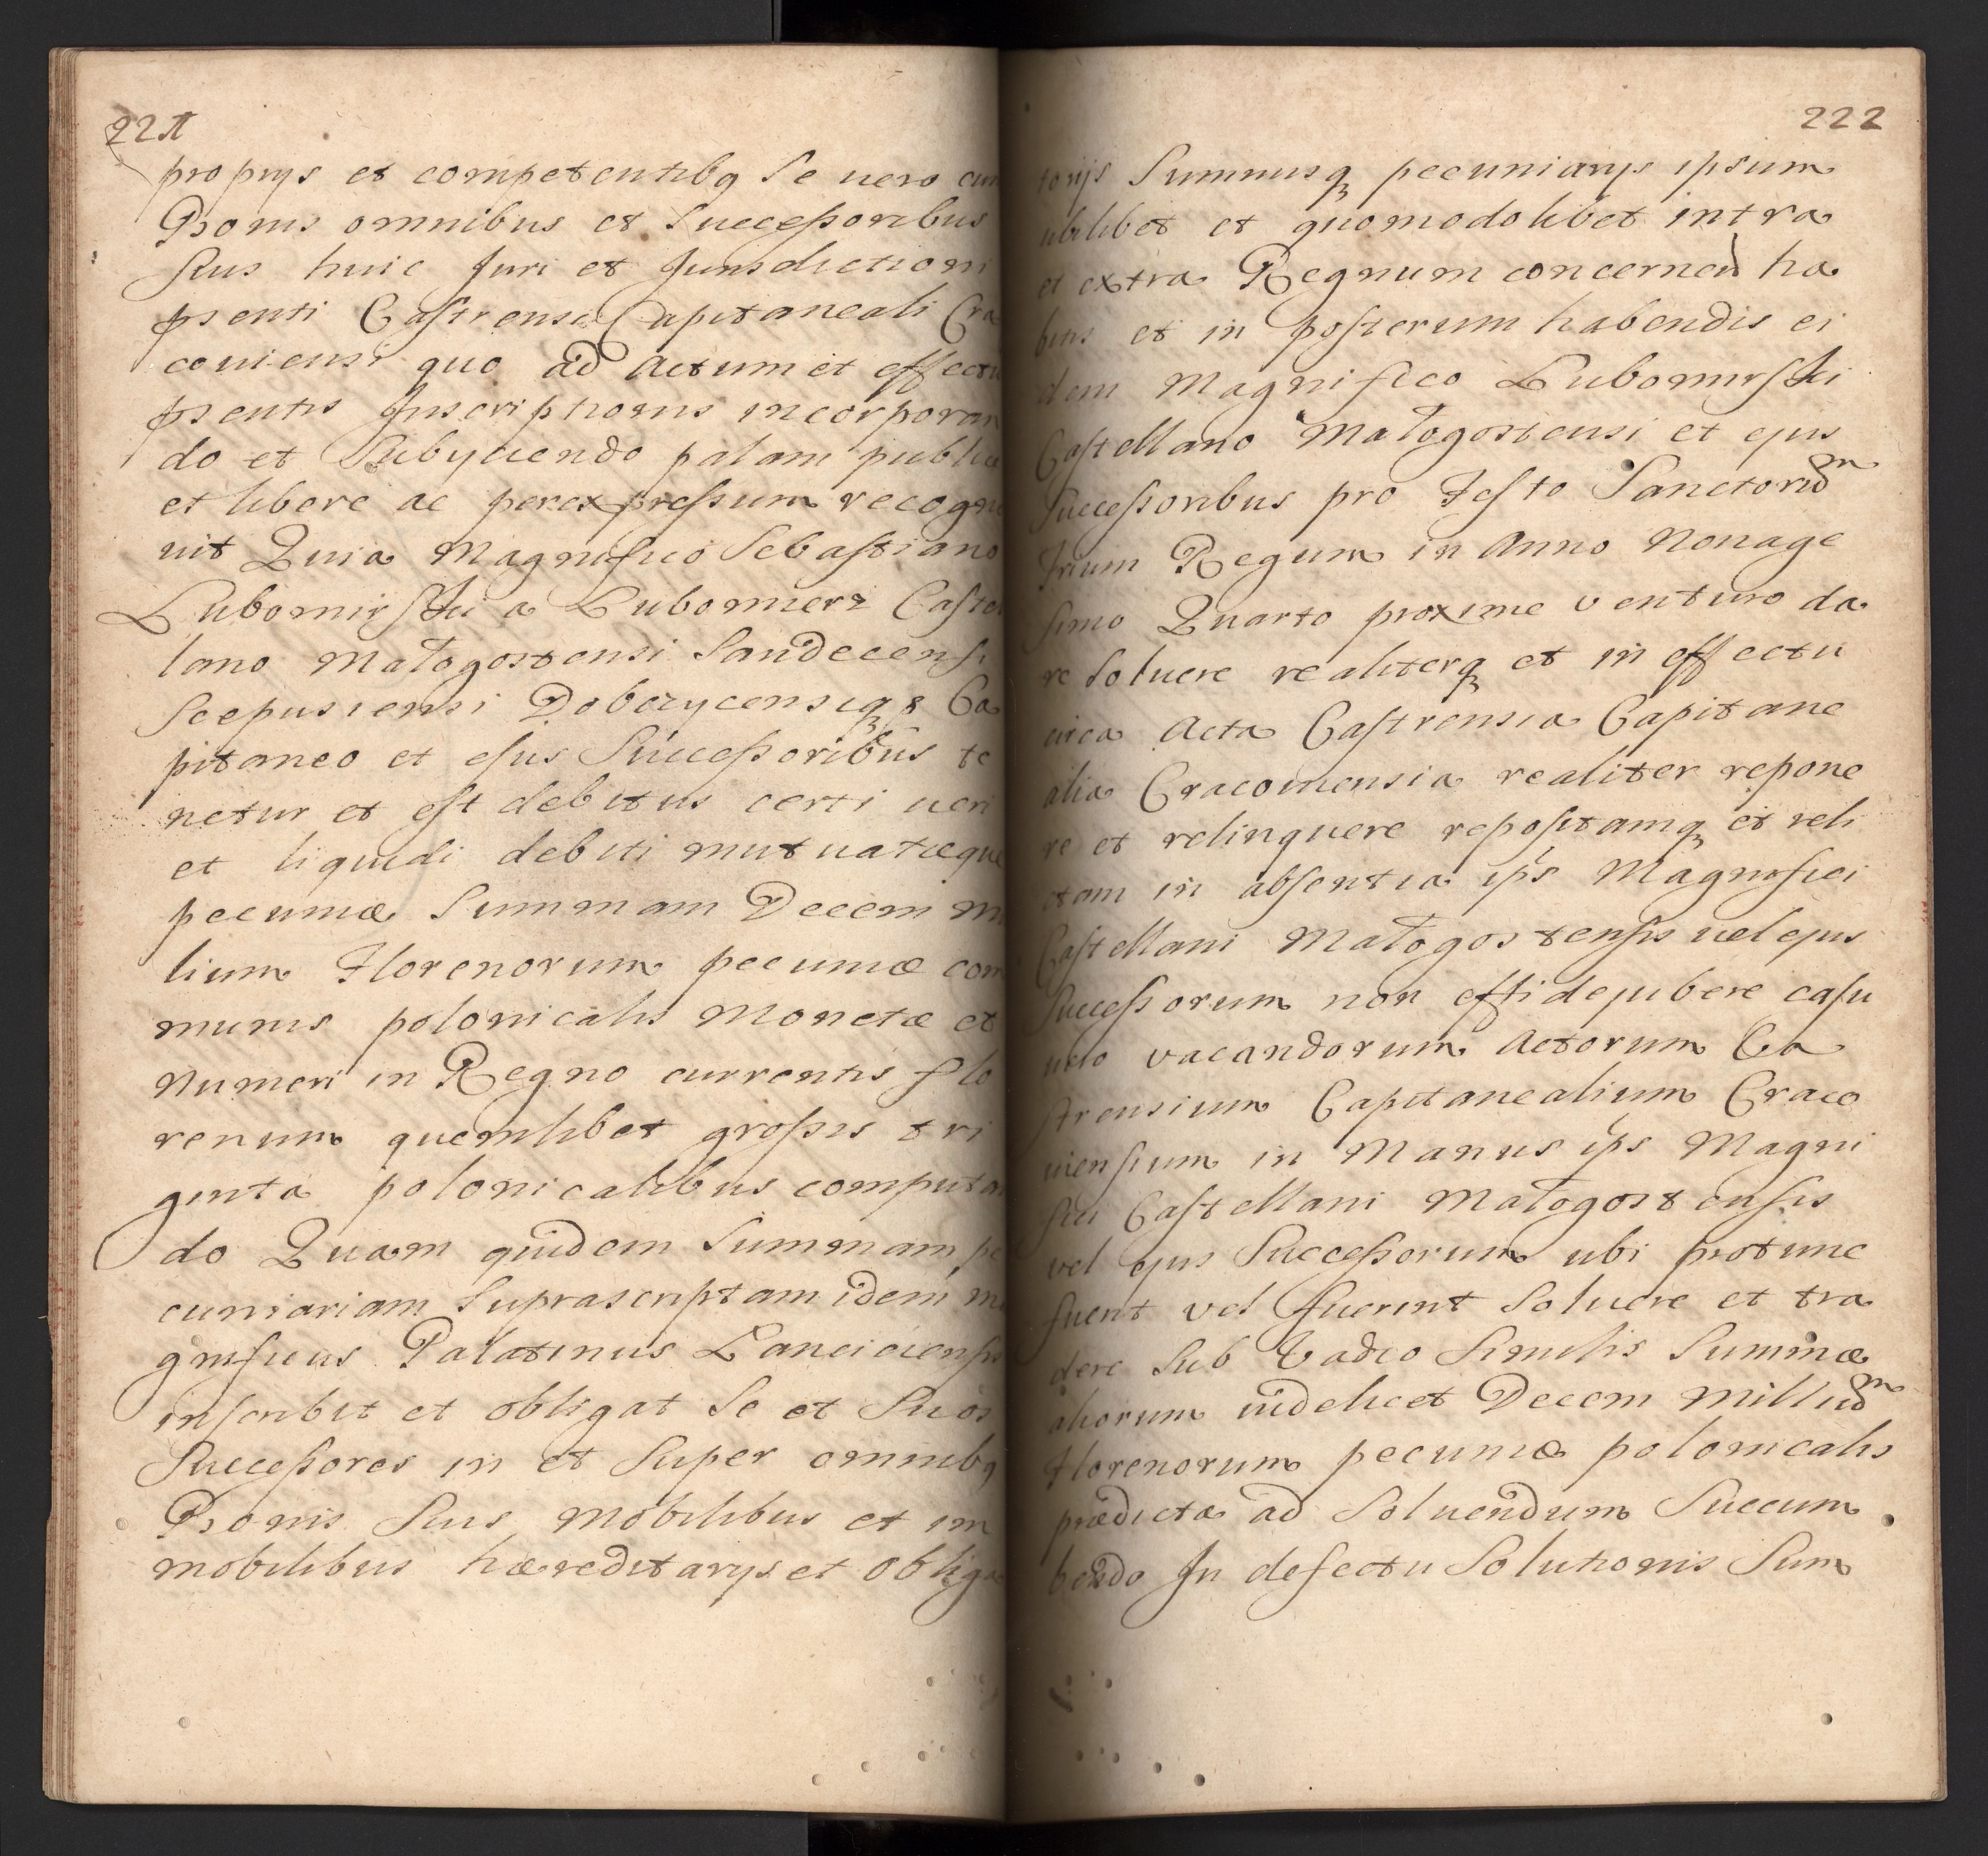 221
proprys et competentibq Se uero cum
Bonis omnibus et Successoribus
Suis huic Juri et Jurisdictioni
pñsenti Castrensi Capitaneali Cra
couiensi quo ad Actum et effectu
pñsentis Inscriptionis incorporan
do et Subyciendo palam publice
et libere ac per expressum recogno
uit Quia Magnifico Sebastiano
Lubomirski a Lubomierz Castel
lano Małogostensi Sandecensi
Scepusiensi Dobczycensiqз Ca
pitaneo et ejus Successoribus te
netur et est debitus certi ueri
et liquidi debiti mutuatæque
pecuniæ Summam Decem mi
lium Florenorum pecuniæ com
munis polonicalis Monetæ et
Numeri in Regno currentis flo
renum quemlibet grossis tri
ginta polonicalibus computan
do Quam quidem Summam pe
cuniariam Suprascriptam idem ma
gnificus Palatinus Lanciciensis
inscribit et obligat Se et Suos
Successores in et Super omnibq
Bonis Suis Mobilibus et im
mobilibus hæreditarys et obliga
222
torijs Summisqз pecuniarys ipsum
ubilibet et quomodolibet intra
et extra Regnum concernen ha
bitis et in posterum habendis ei
dem Magnifico Lubomirski
Castellano Małogostensi et ejus
Successoribus pro Festo Sanctorum
Trium Regum in Anno Nonage
simo Quarto proxime venturo da
re Soluere realiterqз et in effectu
circa Acta Castrensia Capitane
alia Cracouiensia realiter repone
re et relinquere repositamqз et reli
ctam in absentia ips Magnifici
Castellani Małogostensis uel ejus
Successorum non effidejubere casu
uero vacandorum Actorum Ca
strensium Capitanealium Craco
uiensium in Manus ips Magni
fici Castellani Małogostensis
vel ejus Successorum ubi protunc
fuerit vel fuerint Soluere et tra
dere Sub Vadio Similis Summæ
aliorum uidelicet Decem Millium
Florenorum pecuniæ polonicalis
prædicta ad Soluendum Succum
bendo In defectu Solutionis Sum